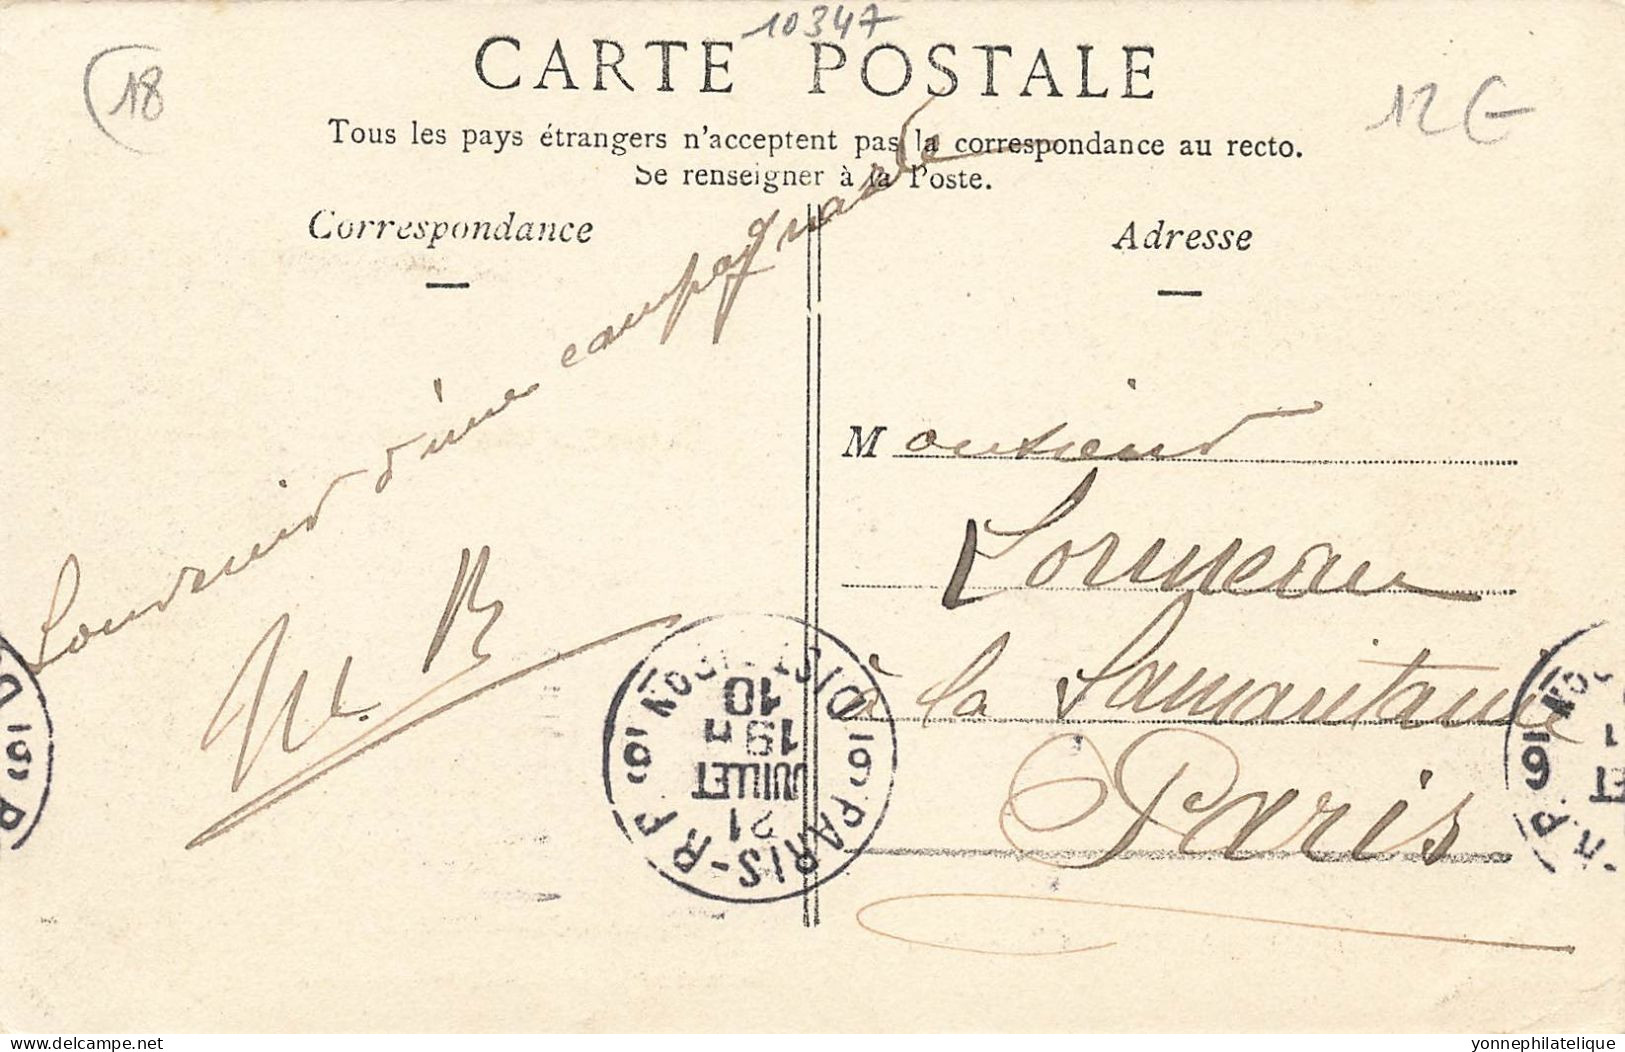 10347
18
12 €
CARTE POSTALE
Tous les pays étrangers n'acceptent pas la correspondance au recto.
Se renseigner à la Poste.
Correspondance
Adresse
Souvenir d'une campagnarde
M. B
Monsieur
Lormeau
à la Samaritaine
Paris
PARIS-R.P.
21
JUILLET
19
10
yonnephilatelie
www.delcampe.net